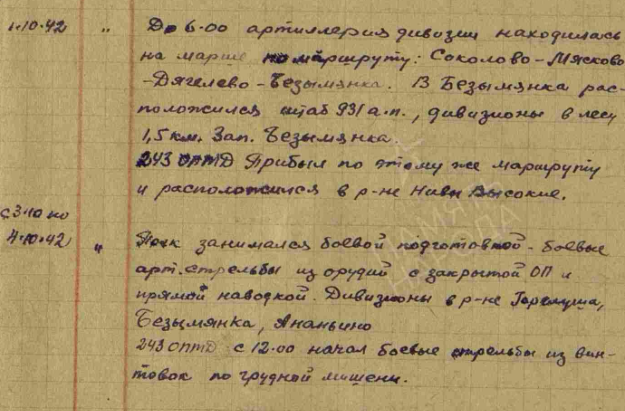 1.10.42 " До 6.00 артиллерия дивизии находилась
на марше по маршруту: Соколово - Мясково
- Дягелево - Безымянка. В Безымянка рас-
положился штаб 931 а.п., дивизионы в лесу
1,5 км. Зап. Безымянка.
243 ОПТД Прибыл по этому же маршруту
и расположился в р-не Нивы Высокие.
с 3.10 по
4.10.42 " Полк занимался боевой подготовкой - боевые
арт. стрельбы из орудий с закрытой ОП и
прямой наводкой. Дивизионы в р-не Горелуша,
Безымянка, Ананьино
243 ОПТД с 12.00 начал боевые стрельбы из вин-
товок по грудной мишени.
ПАМЯТЬ
НАРОДА